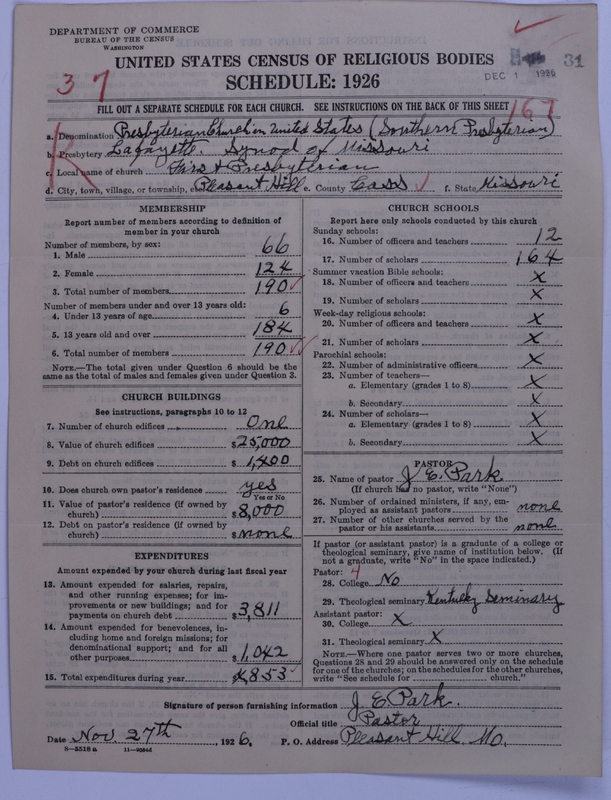 DEPARTMENT OF COMMERCE
BUREAU OF THE CENSUS
WASHINGTON
UNITED STATES CENSUS OF RELIGIOUS BODIES
SCHEDULE: 1926
DEC 1 1926
31
37
167
FILL OUT A SEPARATE SCHEDULE FOR EACH CHURCH. SEE INSTRUCTIONS ON THE BACK OF THIS SHEET
a. Denomination Presbyterian Church in United States (Southern Presbyterian)
b. Presbytery Lafayette. Synod of Missouri
c. Local name of church First Presbyterian
d. City, town, village, or township, etc. Pleasant Hill e. County Cass f. State Missouri
MEMBERSHIP
Report number of members according to definition of
member in your church
Number of members, by sex:
1. Male 66
2. Female 124
3. Total number of members 190
Number of members under and over 13 years old:
4. Under 13 years of age 6
5. 13 years old and over 184
6. Total number of members 190
NOTE.—The total given under Question 6 should be the
same as the total of males and females given under Question 3.
CHURCH BUILDINGS
See instructions, paragraphs 10 to 12
7. Number of church edifices One
8. Value of church edifices $25,000
9. Debt on church edifices $1,400
10. Does church own pastor's residence yes
Yes or No
11. Value of pastor's residence (if owned by
church) $8,000
12. Debt on pastor's residence (if owned by
church) $none
EXPENDITURES
Amount expended by your church during last fiscal year
13. Amount expended for salaries, repairs,
and other running expenses; for im-
provements or new buildings; and for
payments on church debt $3,811
14. Amount expended for benevolences, in-
cluding home and foreign missions; for
denominational support; and for all
other purposes $1,042
15. Total expenditures during year $4853
CHURCH SCHOOLS
Report here only schools conducted by this church
Sunday schools:
16. Number of officers and teachers 12
17. Number of scholars 164
Summer vacation Bible schools:
18. Number of officers and teachers X
19. Number of scholars X
Week-day religious schools:
20. Number of officers and teachers X
21. Number of scholars X
Parochial schools:
22. Number of administrative officers X
23. Number of teachers—
a. Elementary (grades 1 to 8) X
b. Secondary X
24. Number of scholars—
a. Elementary (grades 1 to 8) X
b. Secondary X
PASTOR
25. Name of pastor J. E. Park
(If church has no pastor, write "None")
26. Number of ordained ministers, if any, em-
ployed as assistant pastors none
27. Number of other churches served by the
pastor or his assistants none
If pastor (or assistant pastor) is a graduate of a college or
theological seminary, give name of institution below. (If
not a graduate, write "No" in the space indicated.)
Pastor: 4
28. College No
29. Theological seminary Kentucky Seminary
Assistant pastor:
30. College X
31. Theological seminary X
NOTE.—Where one pastor serves two or more churches,
Questions 28 and 29 should be answered only on the schedule
for one of the churches; on the schedules for the other churches,
write "See schedule for church."
Signature of person furnishing information J. E. Park.
Official title Pastor
Date Nov. 27th, 1926. P. O. Address Pleasant Hill, Mo.